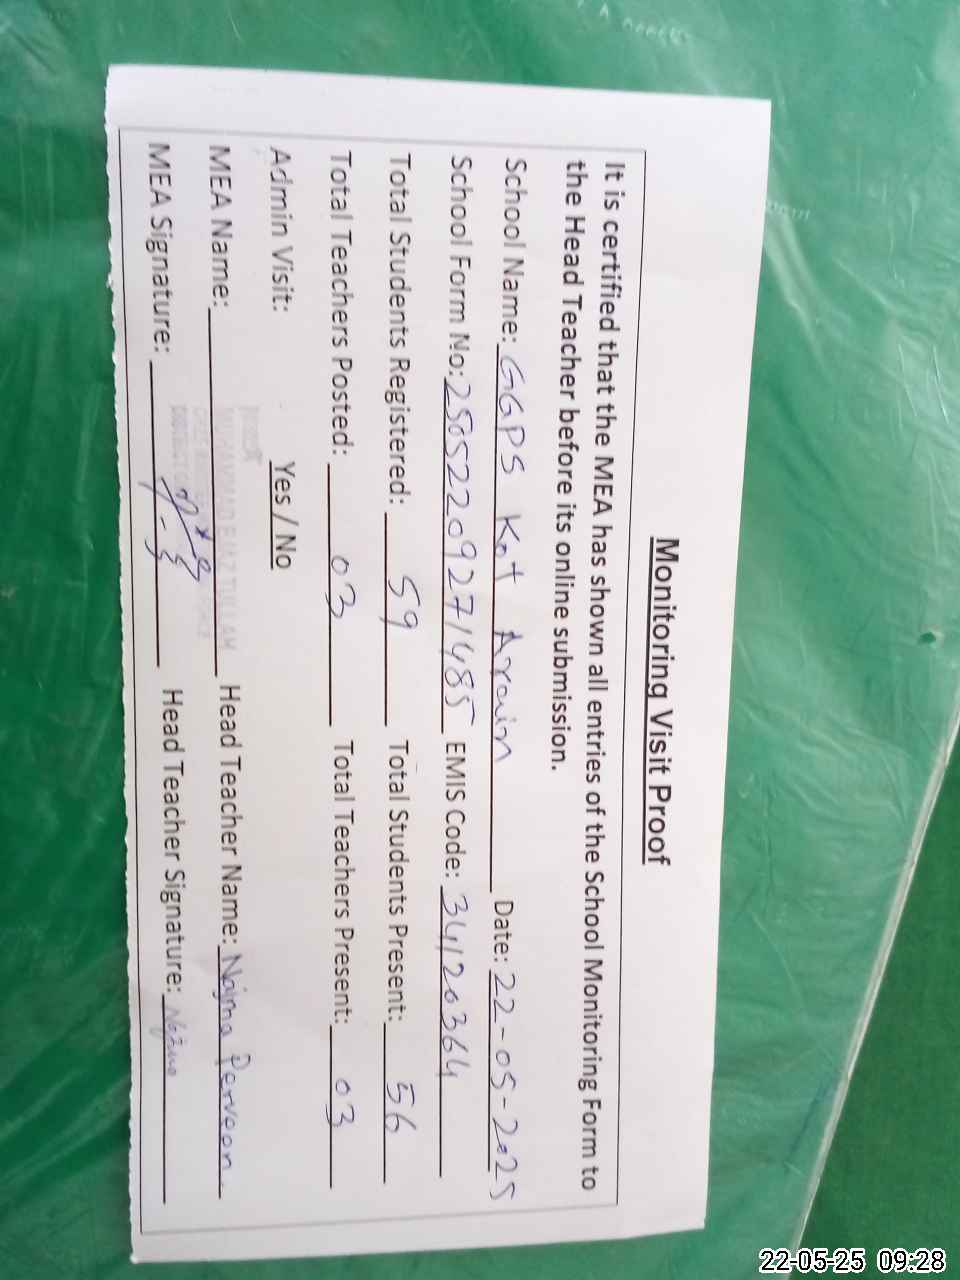 Monitoring Visit Proof
It is certified that the MEA has shown all entries of the School Monitoring Form to
the Head Teacher before its online submission.
School Name: GGPS Kot Arain Date: 22-05-2025
School Form No: 25052209271485 EMIS Code: 34120364
Total Students Registered: 59 Total Students Present: 56
Total Teachers Posted: 03 Total Teachers Present: 03
Admin Visit: Yes / No
MEA Name: Head Teacher Name: Najma Perveen.
MEA Signature: Head Teacher Signature: Najma
22-05-25 09:28